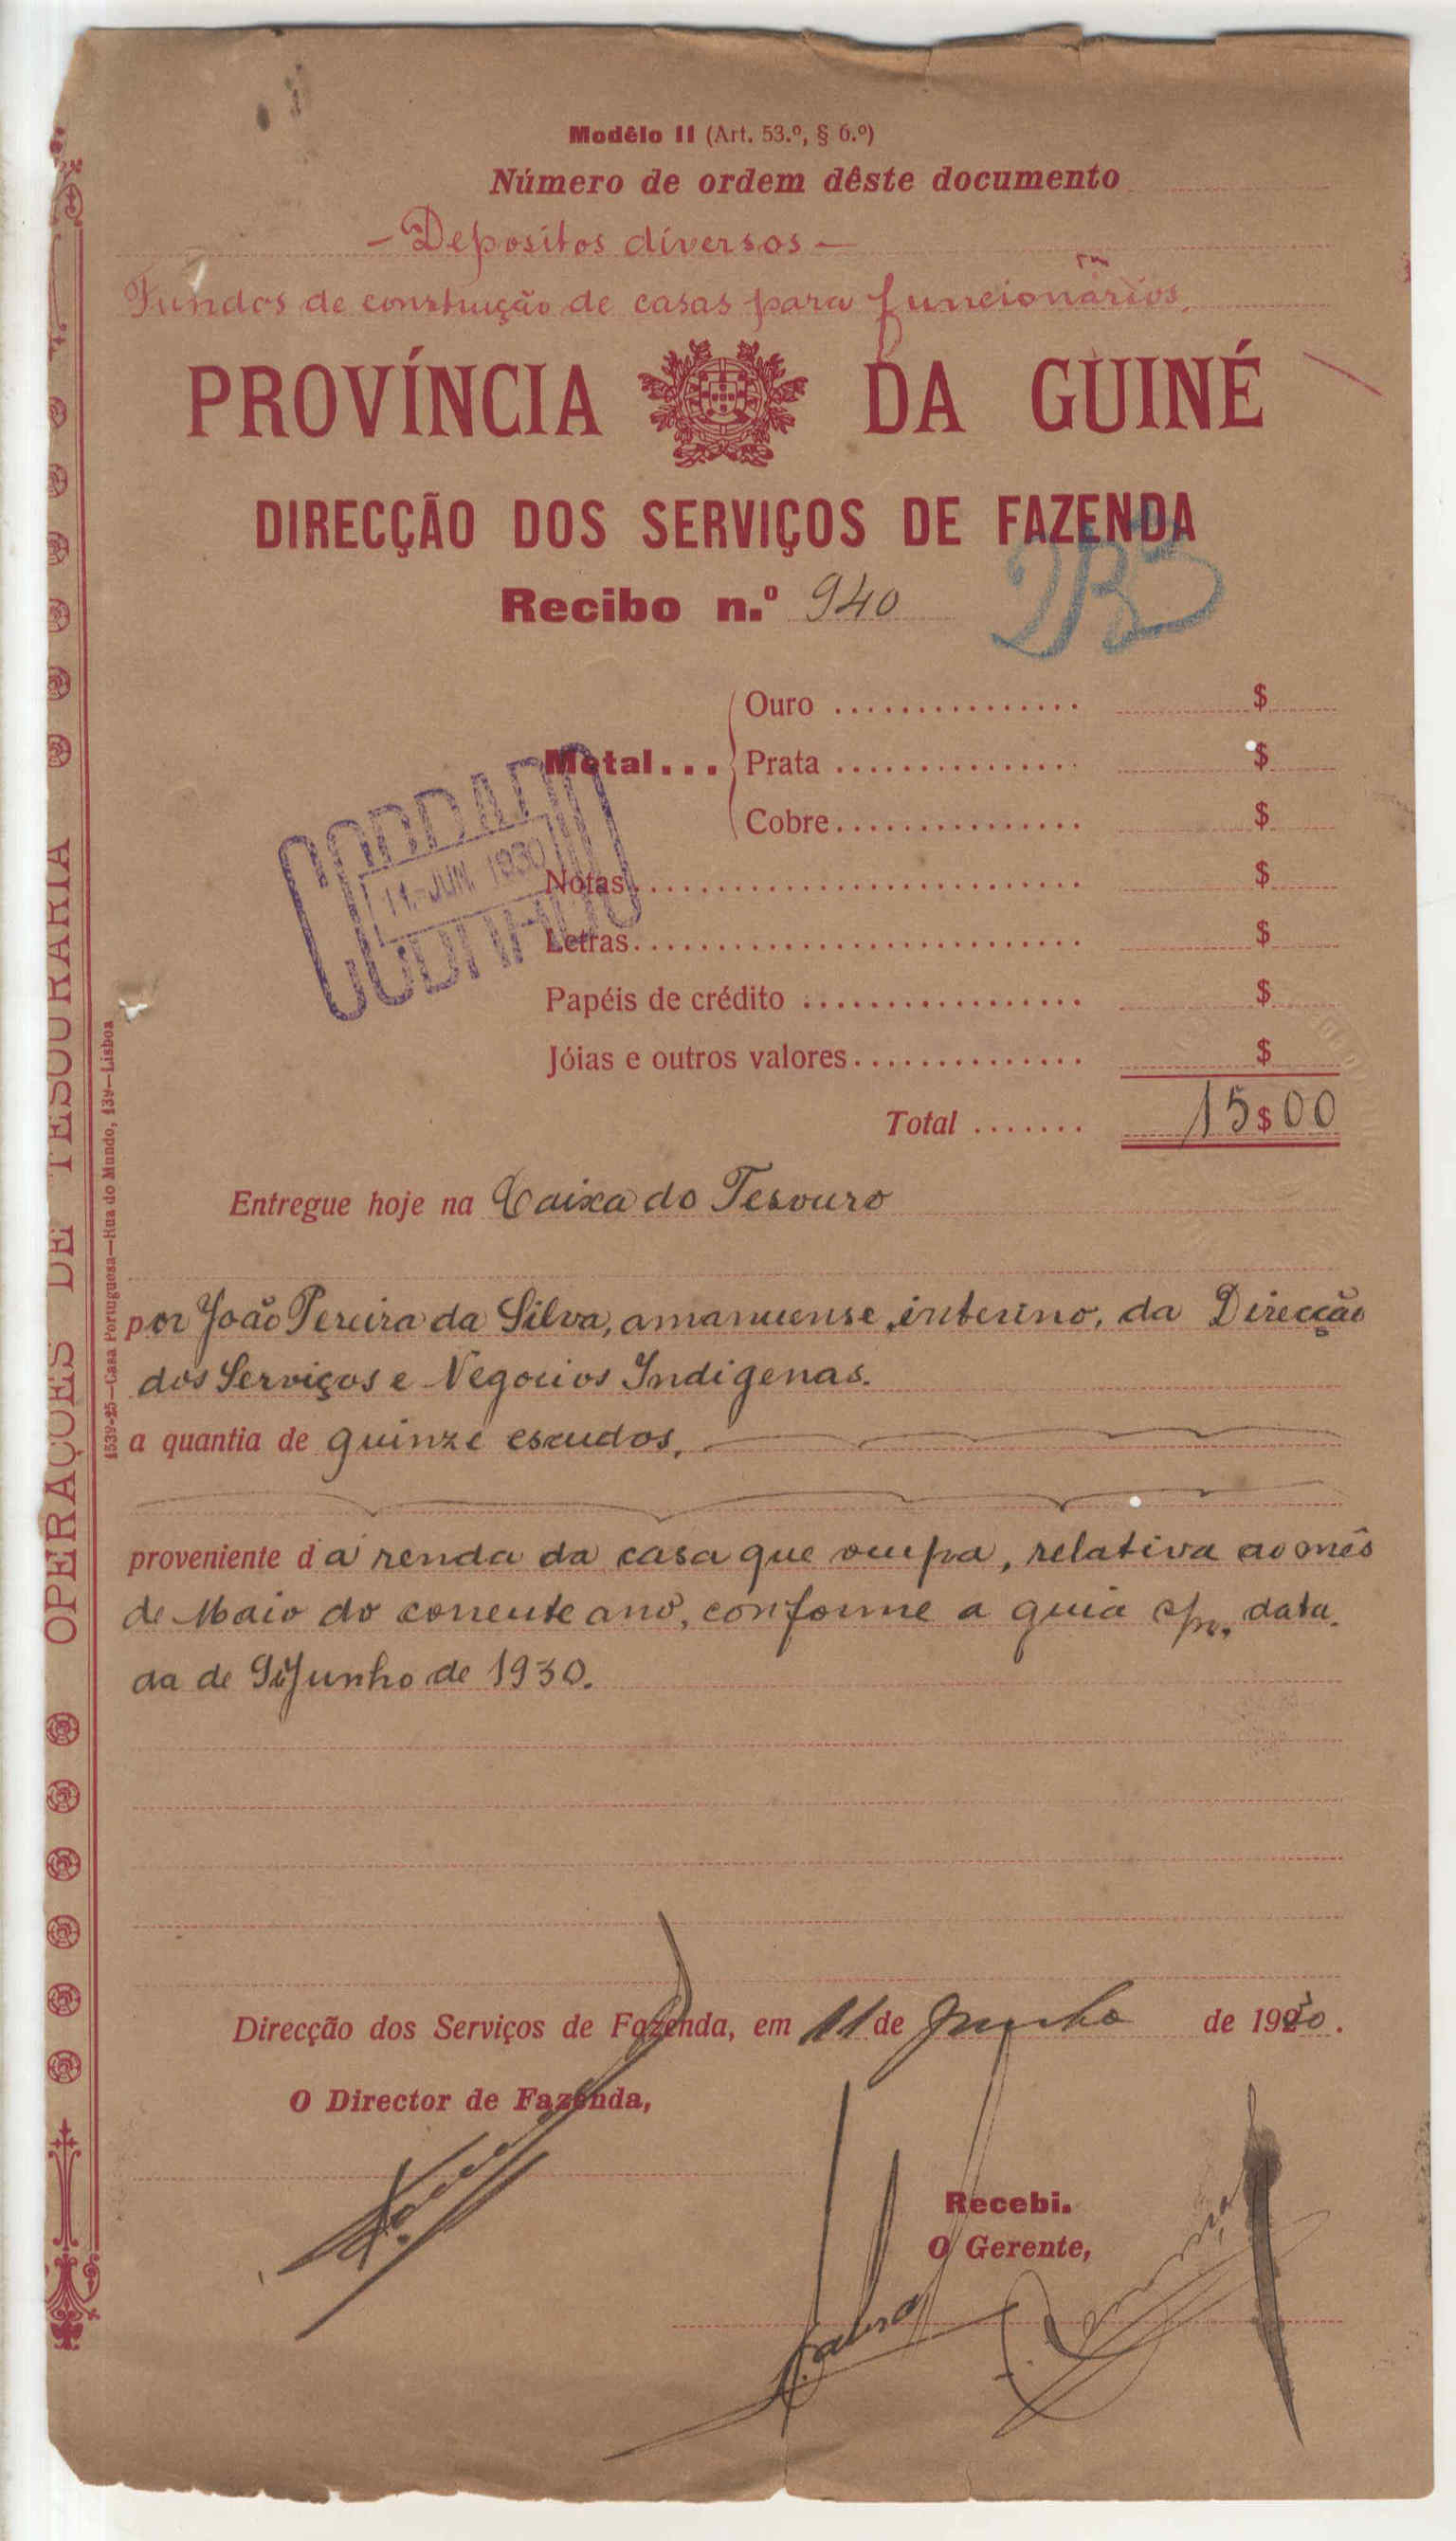 Modêlo 11 (Art. 53.º, § 6.º)
Número de ordem dêste documento
- Depositos diversos -
Fundos de construção de casas para funcionários.
PROVÍNCIA DA GUINÉ
DIRECÇÃO DOS SERVIÇOS DE FAZENDA
Recibo n.º 940
Metal... Ouro ............... $
Prata ............... $
Cobre ............... $
11. JUN. 1930
Notas ............... $
Letras ............... $
Papéis de crédito ............... $
Jóias e outros valores ............... $
Total ....... 15$00
Entregue hoje na Caixa do Tesouro
por João Pereira da Silva, amanuense, interino, da Direcção
dos Serviços e Negocios Indigenas.
a quantia de quinze escudos,
proveniente da renda da casa que ocupa, relativa ao mês
de Maio do corrente ano, conforme a guia s/n., data-
da de 9 de Junho de 1930.
Direcção dos Serviços de Fazenda, em 11 de Junho de 1930.
O Director de Fazenda,
Recebi.
O Gerente,
OPERAÇÕES DE TESOURARIA
1539-25—Casa Portuguesa—Rua do Mundo, 139—Lisboa